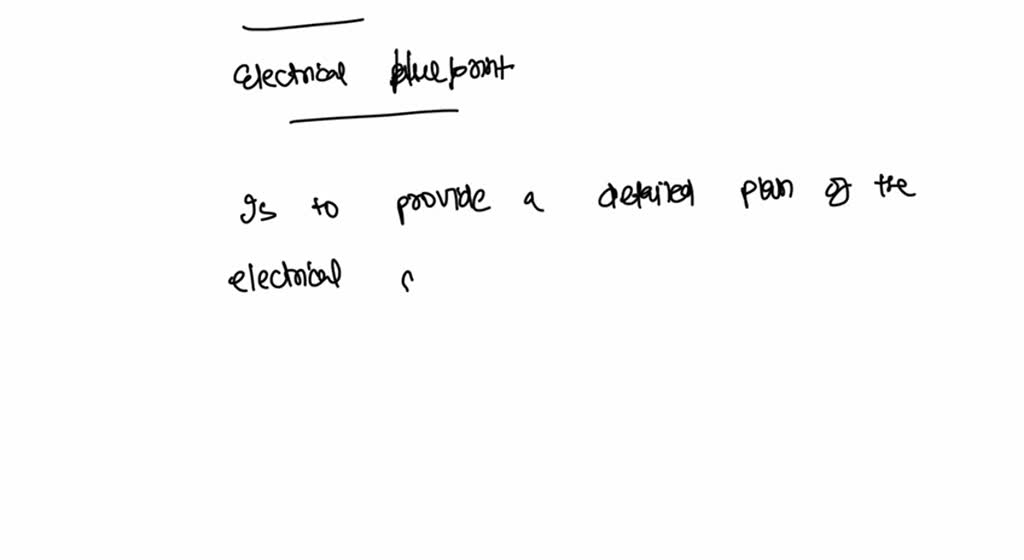 Electrical blueprint
Is to provide a detailed plan of the
electrical